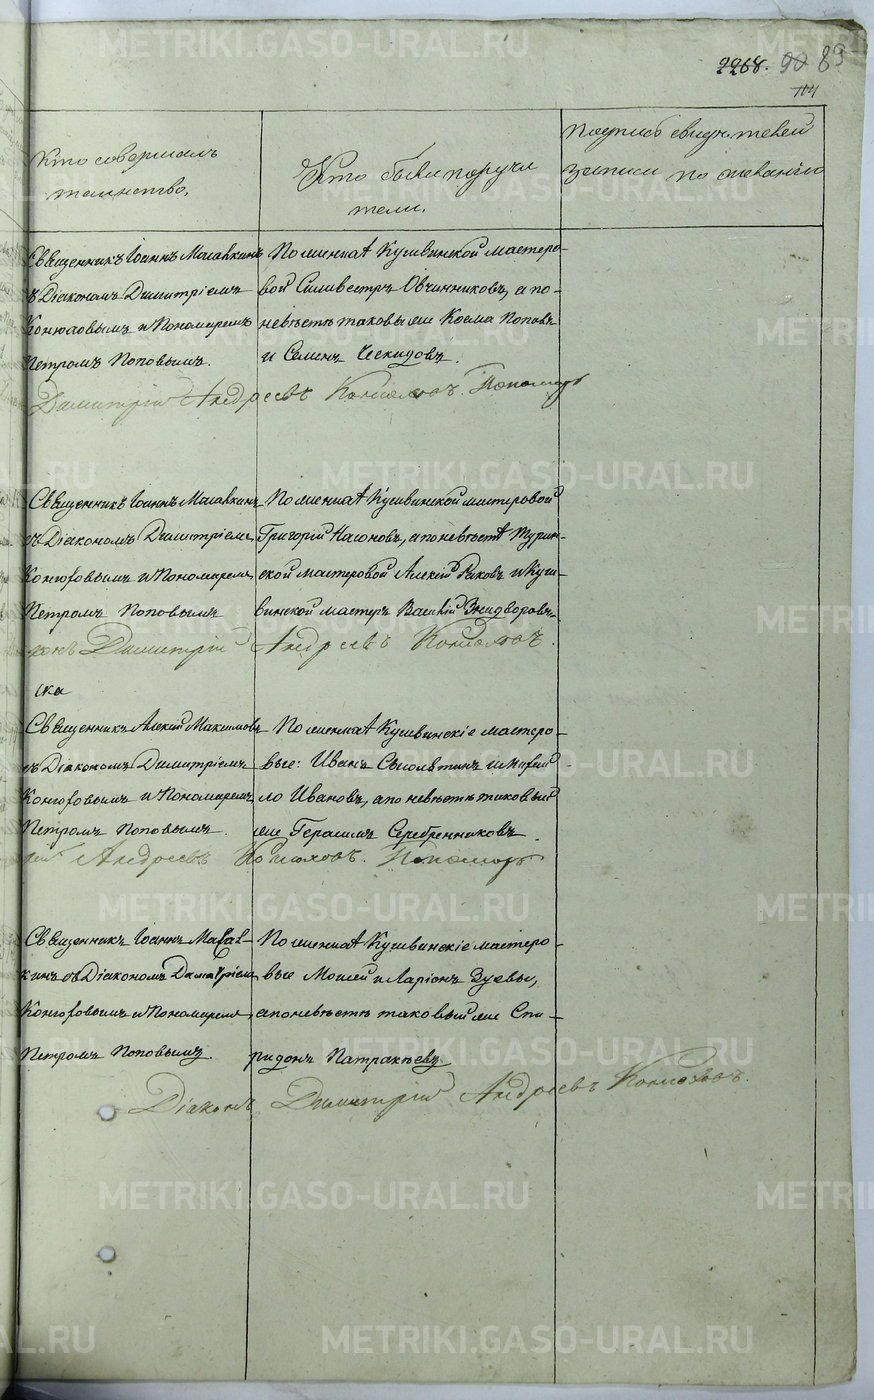 2268. 90 89
Кто совершалъ
таинство.
Кто были поручи
тели.
Подпись свидѣтелей
записи по желанію
Священникъ Іоаннъ Малавкинъ
съ Діакономъ Димитріемъ
Конюховымъ и Пономаремъ
Петромъ Поповымъ.
По женихѣ Кушвинской мастеро-
вой Силивестръ Овчинниковъ, а по-
невѣстѣ таковые же Козма Поповъ
и Семенъ Чекидовъ.
Димитрій Андреевъ Конюховъ. Пономарь
Священникъ Іоаннъ Малавкинъ
съ Діакономъ Димитріемъ
Конюховымъ и Пономаремъ
Петромъ Поповымъ
По женихѣ Кушвинской мастеровой
Григорій Насоновъ, а по невѣстѣ Турин-
ской мастеровой Алексій Раковъ и Куш-
винской мастеръ Василій Знидворовъ.
Димитрій Андреевъ Конюховъ.
Священникъ Алексій Максимовъ
съ Діакономъ Димитріемъ
Конюховымъ и Пономаремъ
Петромъ Поповымъ.
По женихѣ Кушвинскіе мастеро-
вые: Иванъ и Михай
ло Ивановъ, а по невѣстѣ таковый
же Герасимъ Серебренниковъ.
Андреевъ Конюховъ. Пономарь
Священникъ Іоаннъ Малав-
кинъ съ Діакономъ Димитріемъ
Конюховымъ и Пономаремъ
Петромъ Поповымъ.
По женихѣ Кушвинскіе мастеро-
вые Моисей и Ларіонъ Зуевы,
а по невѣстѣ таковый же Спи-
ридонъ Патракѣевъ
Діаконъ Димитрій Андреевъ Конюховъ.
METRIKI.GASO-URAL.RU